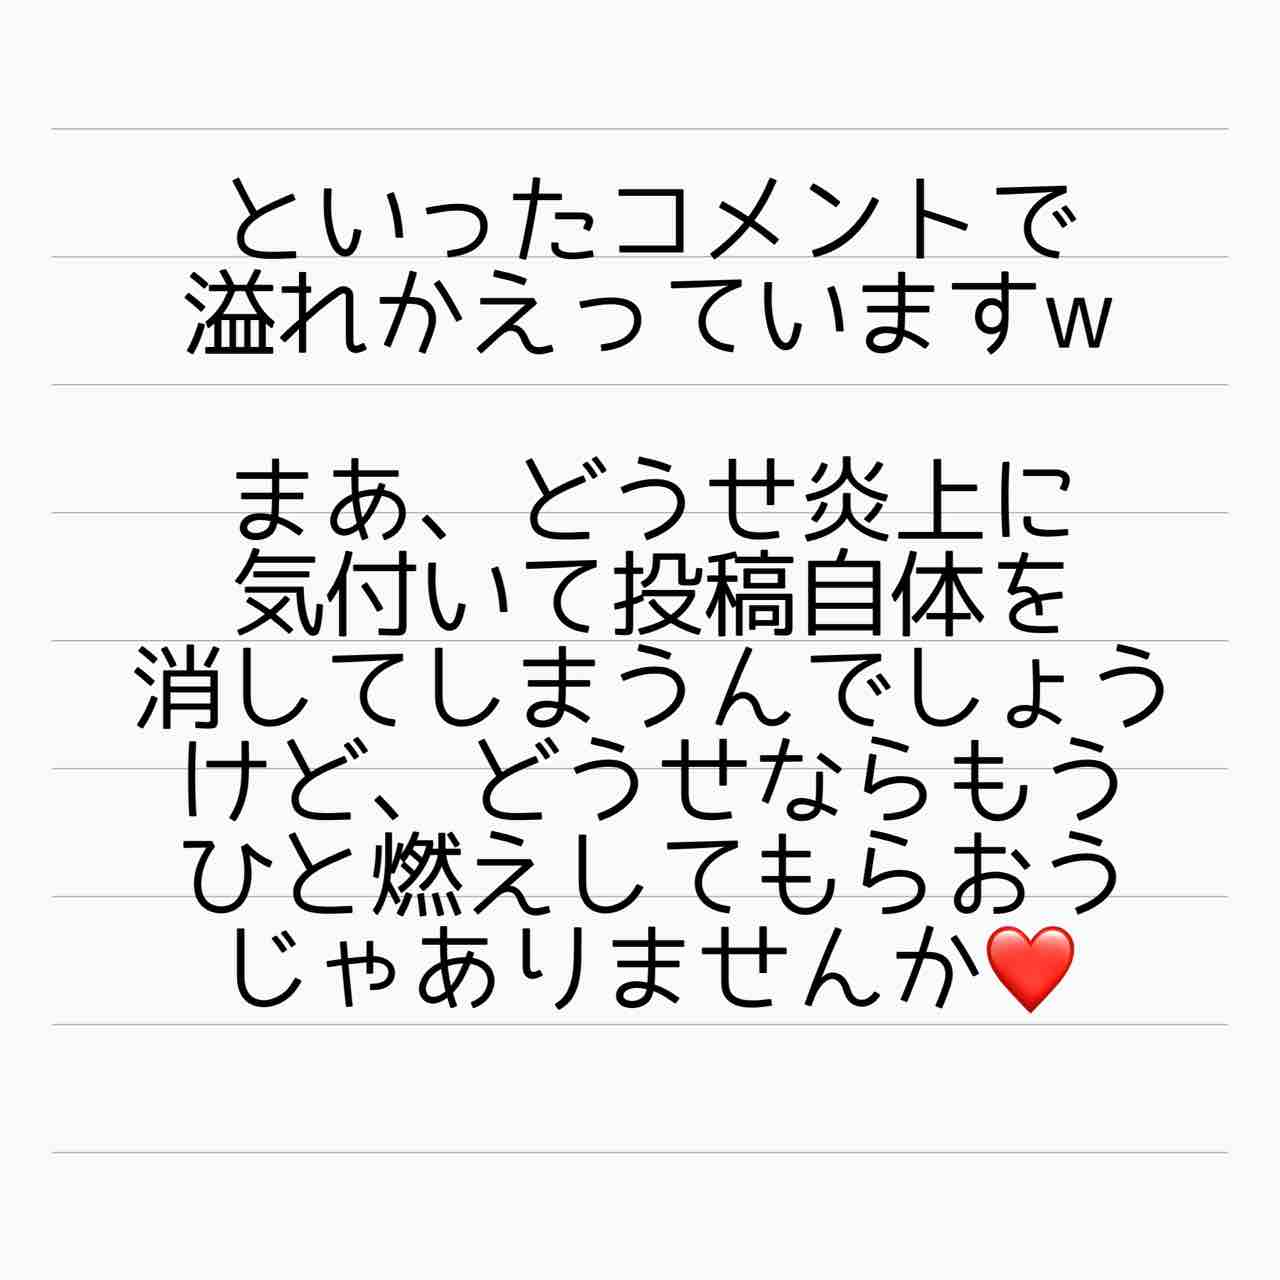 といったコメントで
溢れかえっていますw
まあ、どうせ炎上に
気付いて投稿自体を
消してしまうんでしょう
けど、どうせならもう
ひと燃えしてもらおう
じゃありませんか❤️